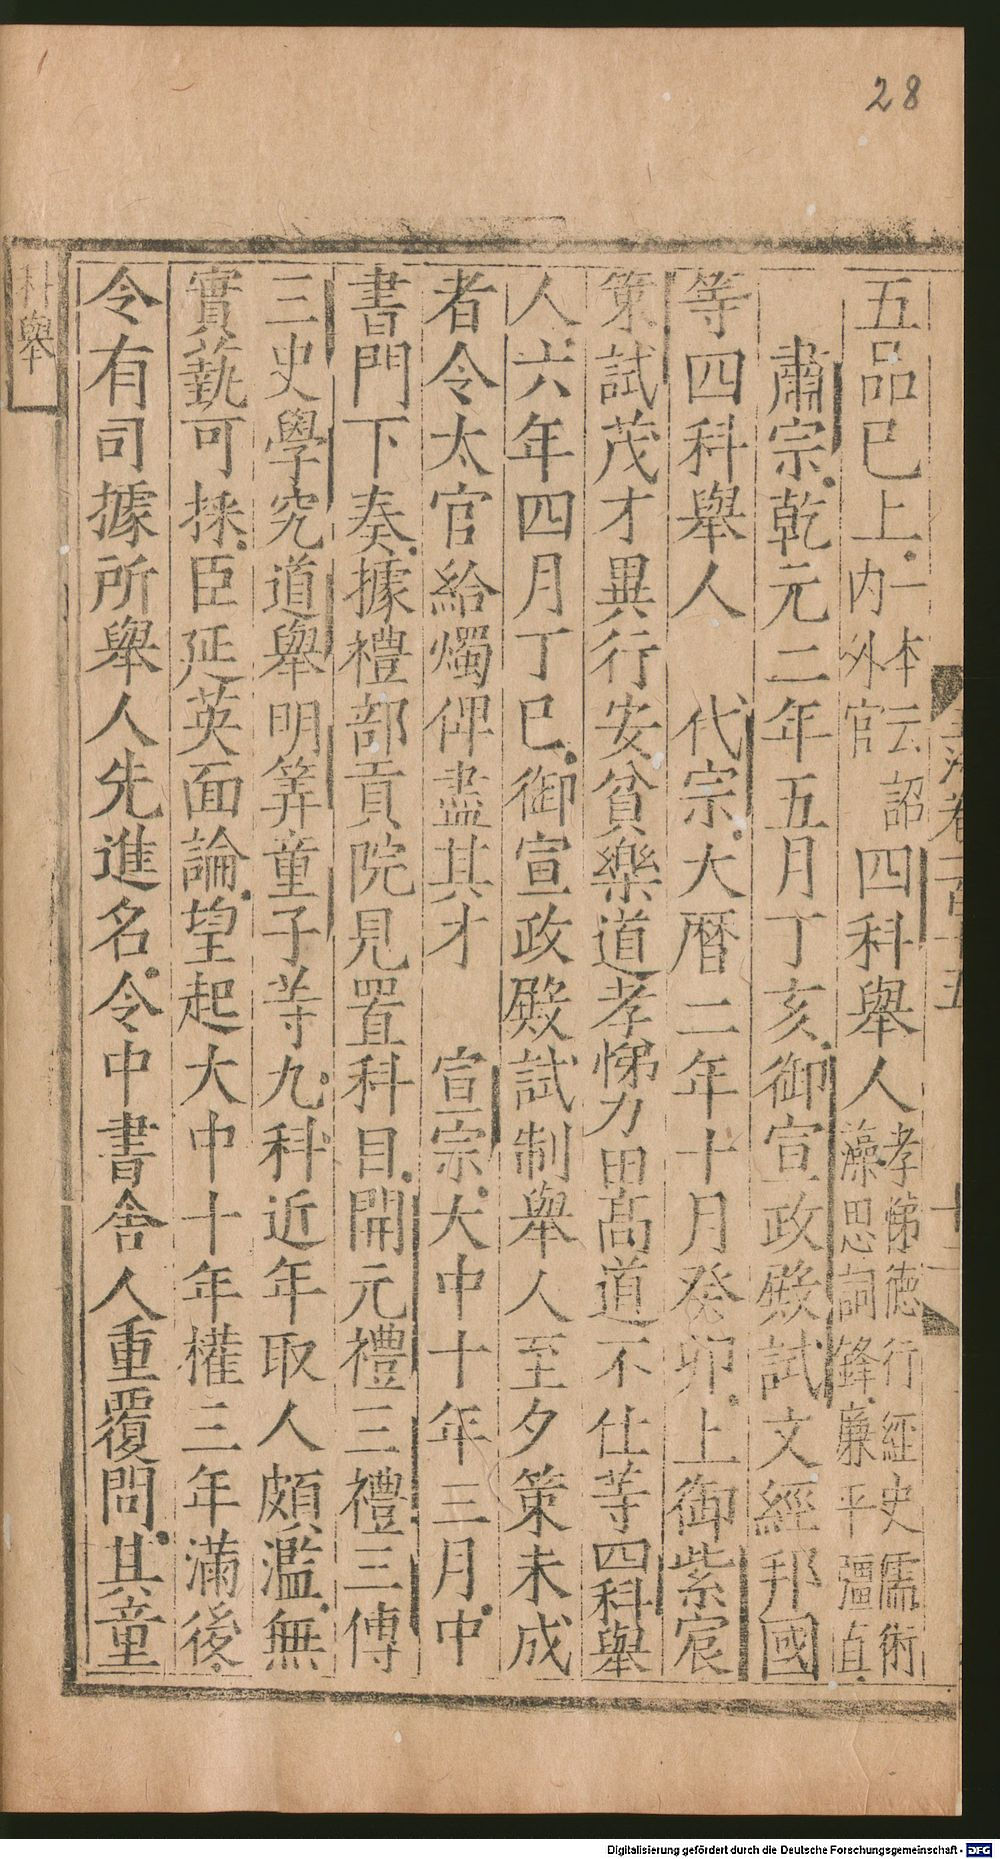 28
五品已上一本云詔内外官四科舉人孝悌德行經史儒術藻思詞鋒廉平彊直
肅宗乾元二年五月丁亥御宣政殿試文經邦國
等四科舉人 代宗大曆二年十月癸卯上御紫宸
策試茂才異行安貧樂道孝悌力田髙道不仕等四科舉
人六年四月丁巳御宣政殿試制舉人至夕策未成
者令太官給燭俾盡其才 宣宗大中十年三月中
書門下奏據禮部貢院見置科目開元禮三禮三傳
三史學究道舉明筭童子等九科近年取人頗濫無
實藝可採臣延英面論望起大中十年權三年滿後
令有司據所舉人先進名令中書舍人重覆問其童
科舉
Digitalisierung gefördert durch die Deutsche Forschungsgemeinschaft - DFG